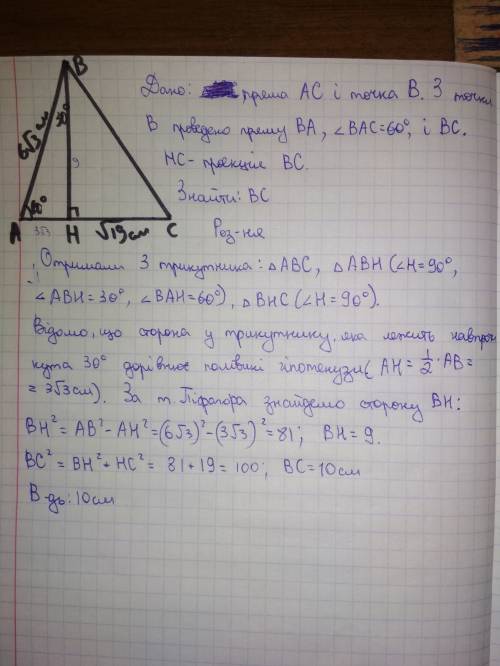 B
30°
6√3 см
9
60°
A
3√3
H
√19 см
C
Дано: пряма AC і точка B. З точки
B проведено пряму BA, ∠BAC=60°, і BC.
HC - проекція BC.
Знайти: BC
Роз-ня
Отримали 3 трикутника: △ABC, △ABH (∠H=90°,
∠ABH=30°, ∠BAH=60°), △BHC (∠H=90°).
Відомо, що сторона у трикутнику, яка лежить навпроти
кута 30° дорівнює половині гіпотенузи (AH = 1/2 · AB =
= 3√3 см). За т. Піфагора знайдемо сторону BH:
BH² = AB² - AH² = (6√3)² - (3√3)² = 81; BH = 9.
BC² = BH² + HC² = 81 + 19 = 100; BC = 10 см
В-дь: 10 см